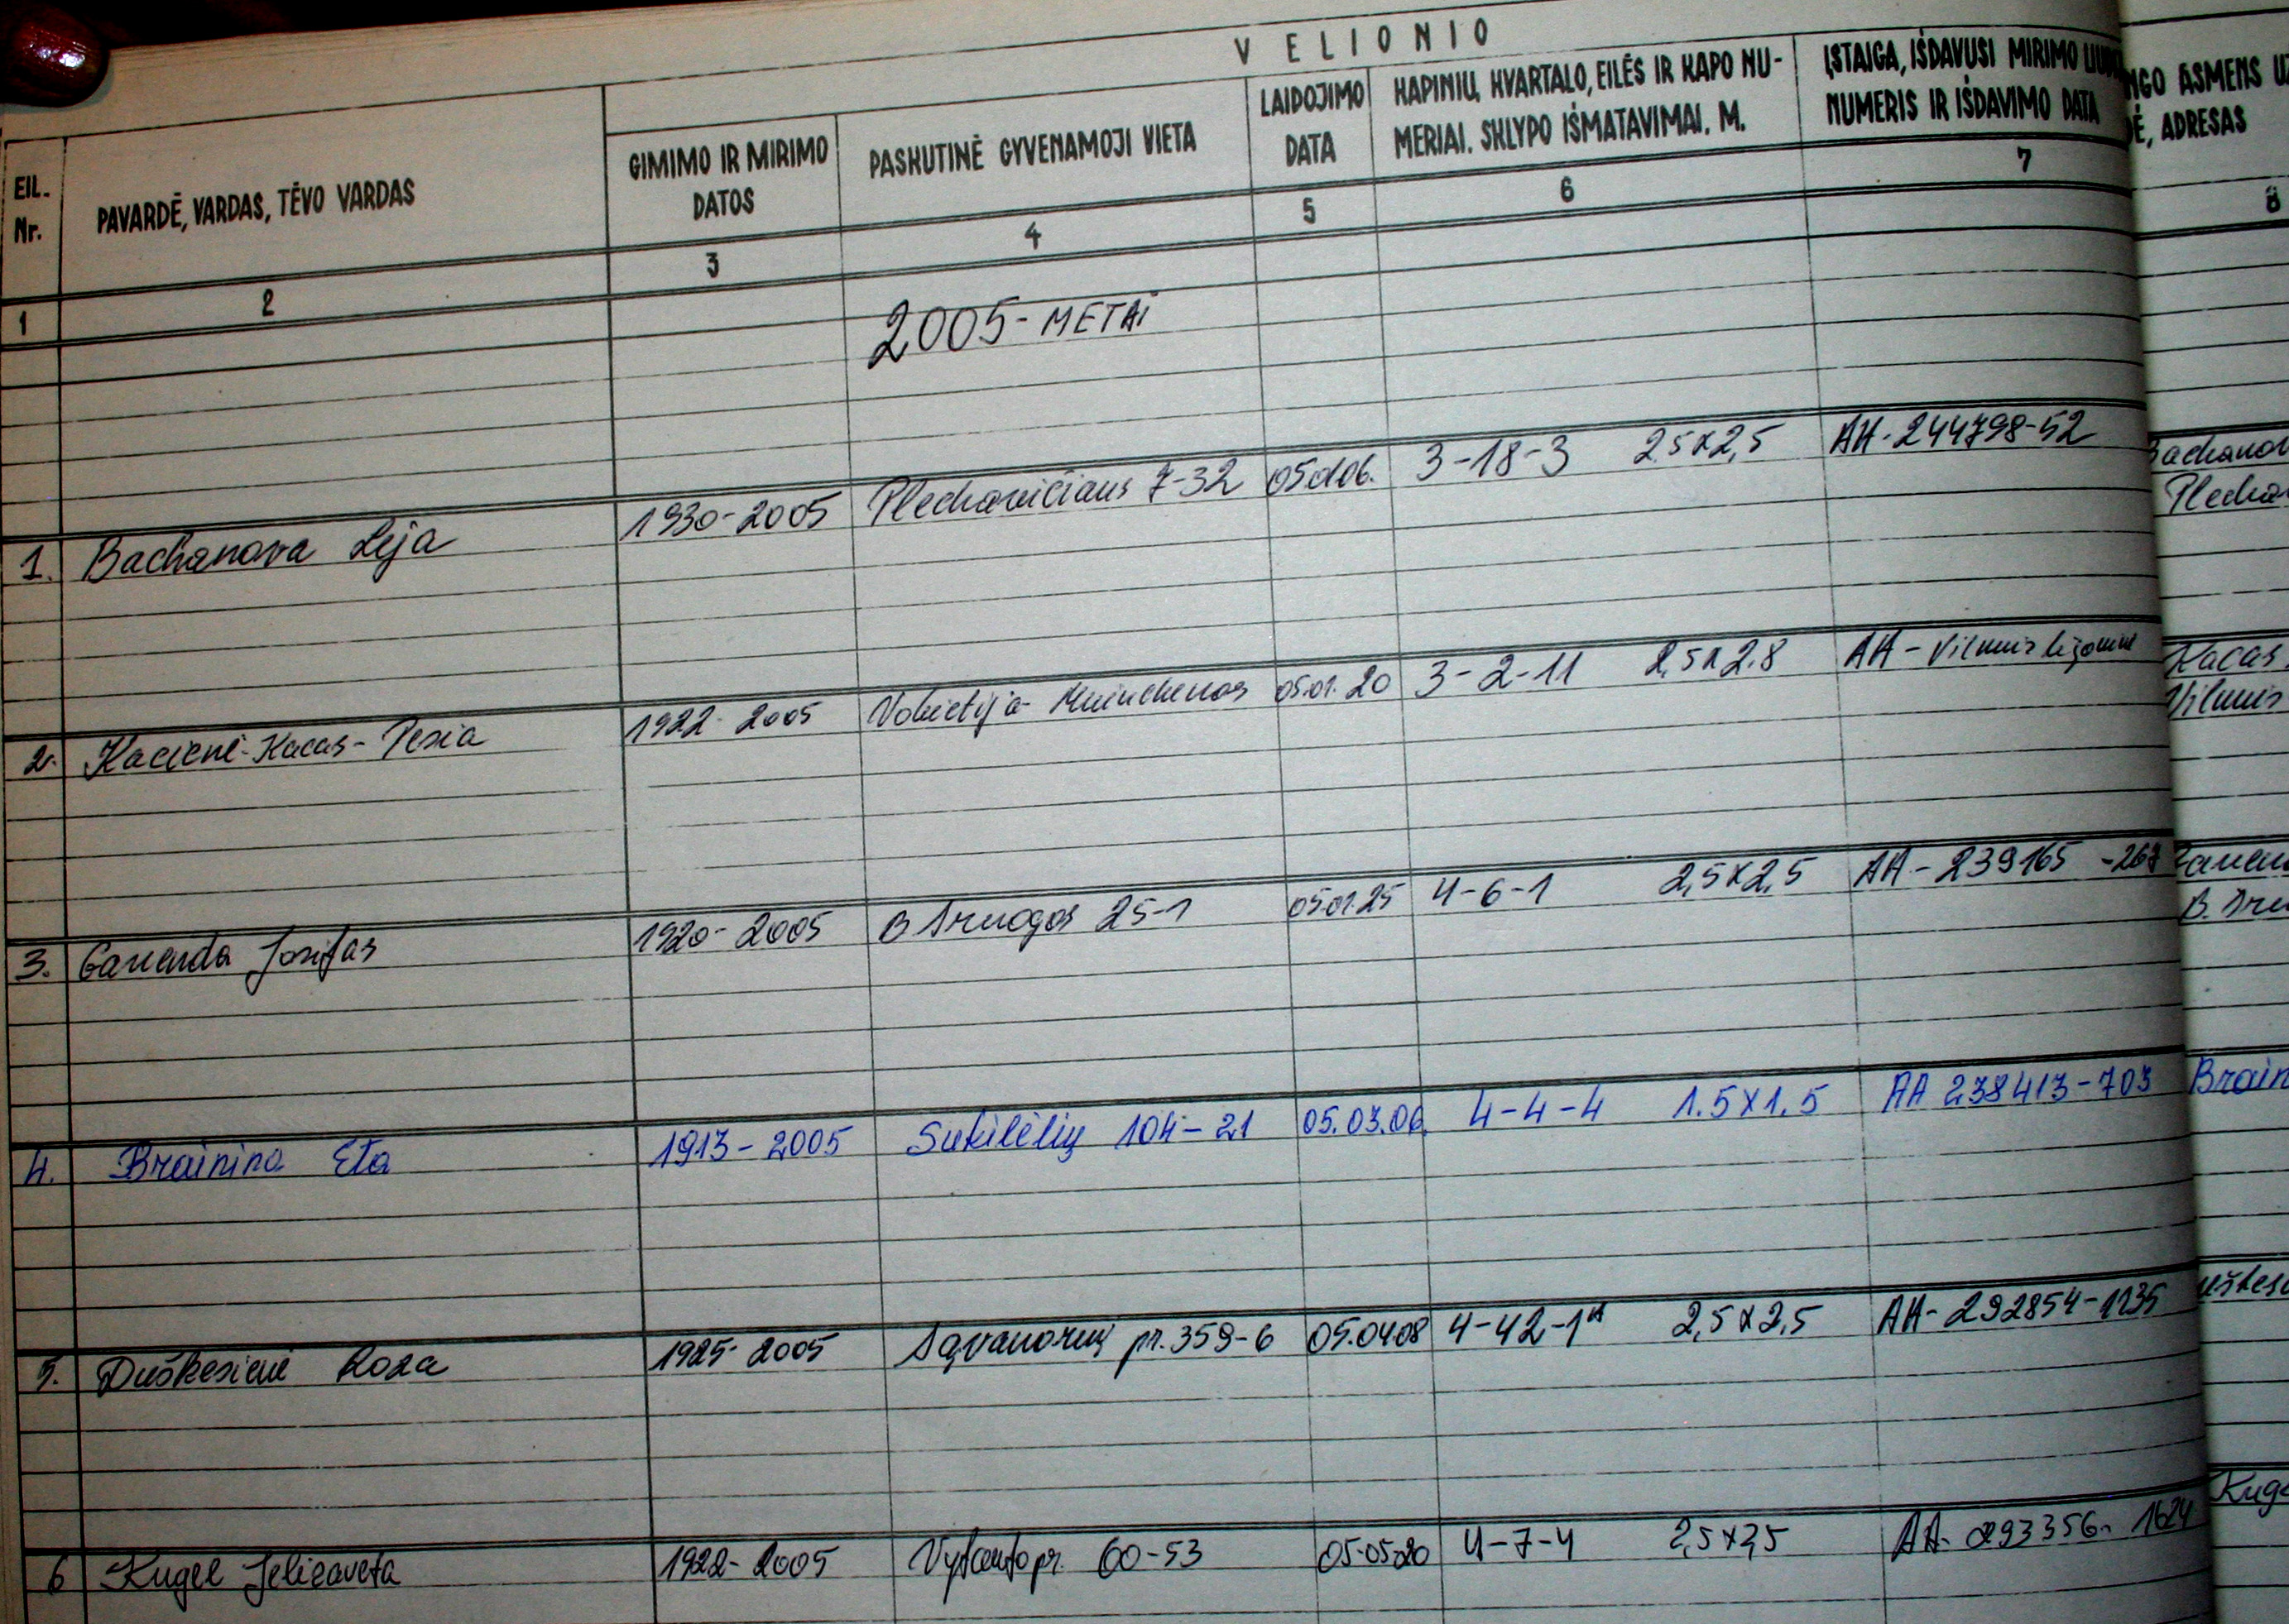 VELIONIO
EIL. Nr.
PAVARDĖ, VARDAS, TĖVO VARDAS
GIMIMO IR MIRIMO DATOS
PASKUTINĖ GYVENAMOJI VIETA
LAIDOJIMO DATA
KAPINIŲ, KVARTALO, EILĖS IR KAPO NU-
MERIAI. SKLYPO IŠMATAVIMAI, M.
ĮSTAIGA, IŠDAVUSI MIRIMO
NUMERIS IR IŠDAVIMO DATA
ASMENS
ADRESAS
1 2 3 4 5 6 7 8
2005 - METAI
1. Bachanova Leja 1930-2005 Plechavičiaus 7-32 3-18-3 2,5x2,5 AA-244798-52
Plecha
2. Kacienė-Kacas-Pesia 1922-2005 05.01.20 3-2-11 2,5x2.8 AA-Vilniaus Kacas
Vilnius
3. Josifas 1920-2005 25-1 05.01.25 4-6-1 2,5x2,5 AA-239165 -267
4. Brainina Eta 1913-2005 Sukilėlių 104-21 05.03.06. 4-4-4 1.5x1,5 AA 238413-703 Brain
5. Duškesienė Roza 1925-2005 Savanorių pr. 359-6 05.04.08 4-42-1A 2,5x2,5 AA-292854-1135
6 Kugel Jelizaveta 1922-2005 Vytauto pr. 60-53 05.05.20 4-7-4 2,5x2,5 AA-293356-1624